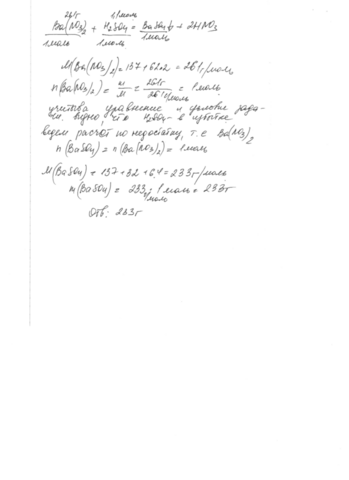 261г 1,1 моль
Ba(NO3)2 + H2SO4 = BaSO4↓ + 2HNO3
1 моль 1 моль 1 моль
M(Ba(NO3)2) = 137 + 62·2 = 261 г/моль
n(Ba(NO3)2) = m/M = 261г/261 г/моль = 1 моль
учитывая уравнение и условия зада-
чи видно, что H2SO4 в избытке
ведем расчёт по недостатку, т.е Ba(NO3)2
n(BaSO4) = n(Ba(NO3)2) = 1 моль
M(BaSO4) = 137 + 32 + 64 = 233 г/моль
m(BaSO4) = 233 г/моль · 1 моль = 233г
Отв: 233г